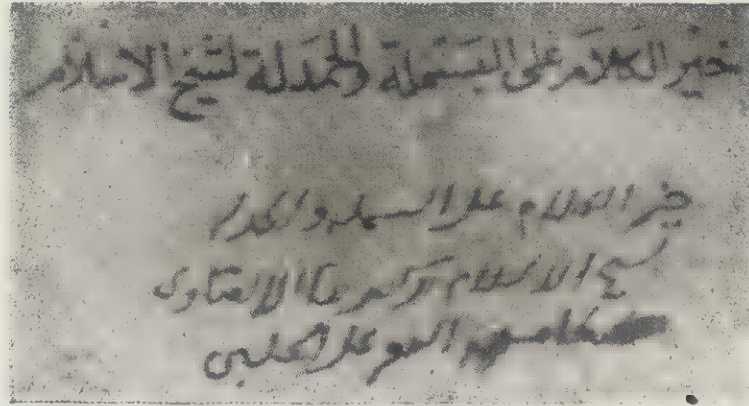 خير الكلام على البسملة والحمدلة لشيخ الاسلام
خير الكلام على البسملة والحمدلة
شيخ الاسلام زكريا الانصاري
على